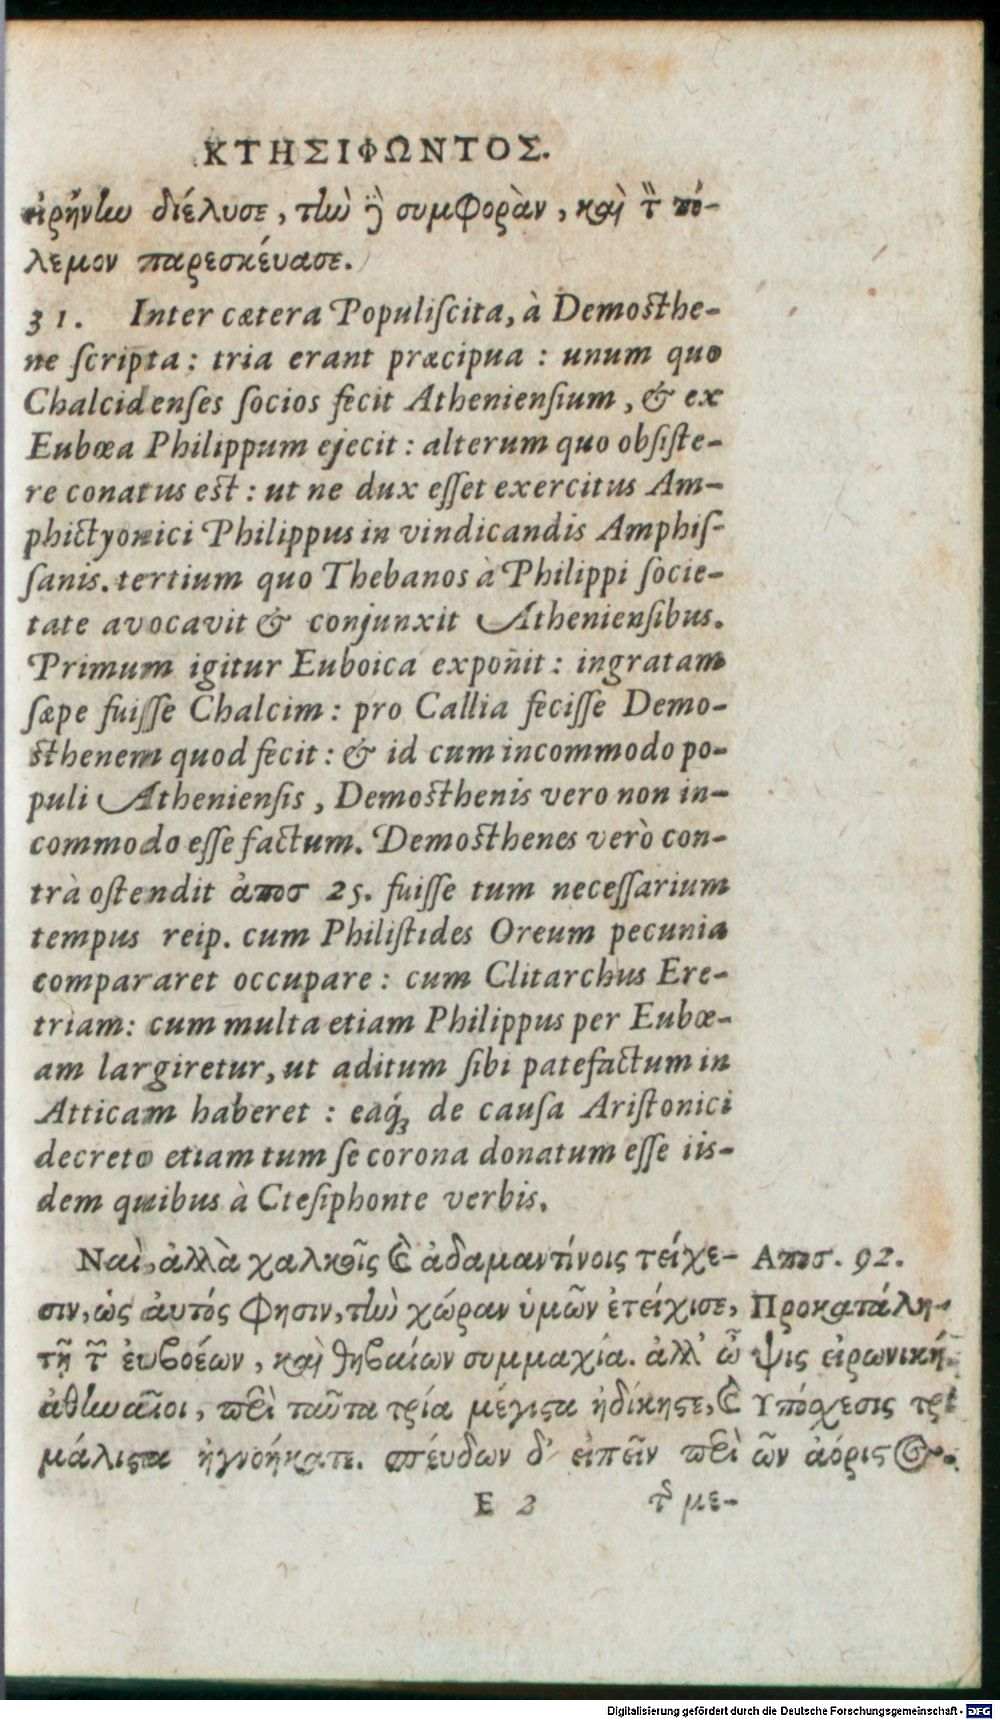 ΚΤΗΣΙΦΩΝΤΟΣ.
εἰρήνην διέλυσε, τὴν ϳ συμφορὰν, καὶ τ πό-
λεμον παρεσκέυασε.
31. Inter cætera Populiſcita, à Demoſthe-
ne ſcripta: tria erant præcipua: unum quo
Chalcidenſes ſocios fecit Athenienſium, & ex
Eubœa Philippum ejecit: alterum quo obſiſte-
re conatus eſt: ut ne dux eſſet exercitus Am-
phictyonici Philippus in vindicandis Amphiſ-
ſanis. tertium quo Thebanos à Philippi ſocie-
tate avocavit & conjunxit Athenienſibus.
Primum igitur Euboica expoñit: ingratam
ſæpe fuiſſe Chalcim: pro Callia feciſſe Demo-
ſthenem quod fecit: & id cum incommodo po-
puli Athenienſis, Demoſthenis vero non in-
commodo eſſe factum. Demoſthenes verò con-
trà oſtendit ἀποσ 25. fuiſſe tum neceſſarium
tempus reip. cum Philiſtides Oreum pecunia
compararet occupare: cum Clitarchus Ere-
triam: cum multa etiam Philippus per Eubœ-
am largiretur, ut aditum ſibi patefactum in
Atticam haberet: eaq́; de cauſa Ariſtonici
decreto etiam tum ſe corona donatum eſſe iis-
dem quibus à Cteſiphonte verbis.
Ναὶ, ἀλλὰ χαλκοῖς καὶ ἀδαμαντίνοις τείχε-
σιν, ὡς ἀυτός φησιν, τὴν χώραν ὑμῶν ἐτείχισε,
τῇ τ ἐυβοέων, καὶ θηβαίων συμμαχία. ἀλλ' ὦ
ἀθηναῖοι, περὶ ταῦτα τρία μέγιστα ἠδίκησε, καὶ
μάλιστα ἠγνοήκατε. σπέυδων δ' εἰπεῖν περὶ
Αποσ. 92.
Προκατάλη-
ψις εἰρωνική.
Υπόσχεσις τρι
ῶν ἀόριστος.
E 2 τ με-
Digitalisierung gefördert durch die Deutsche Forschungsgemeinschaft - DFG